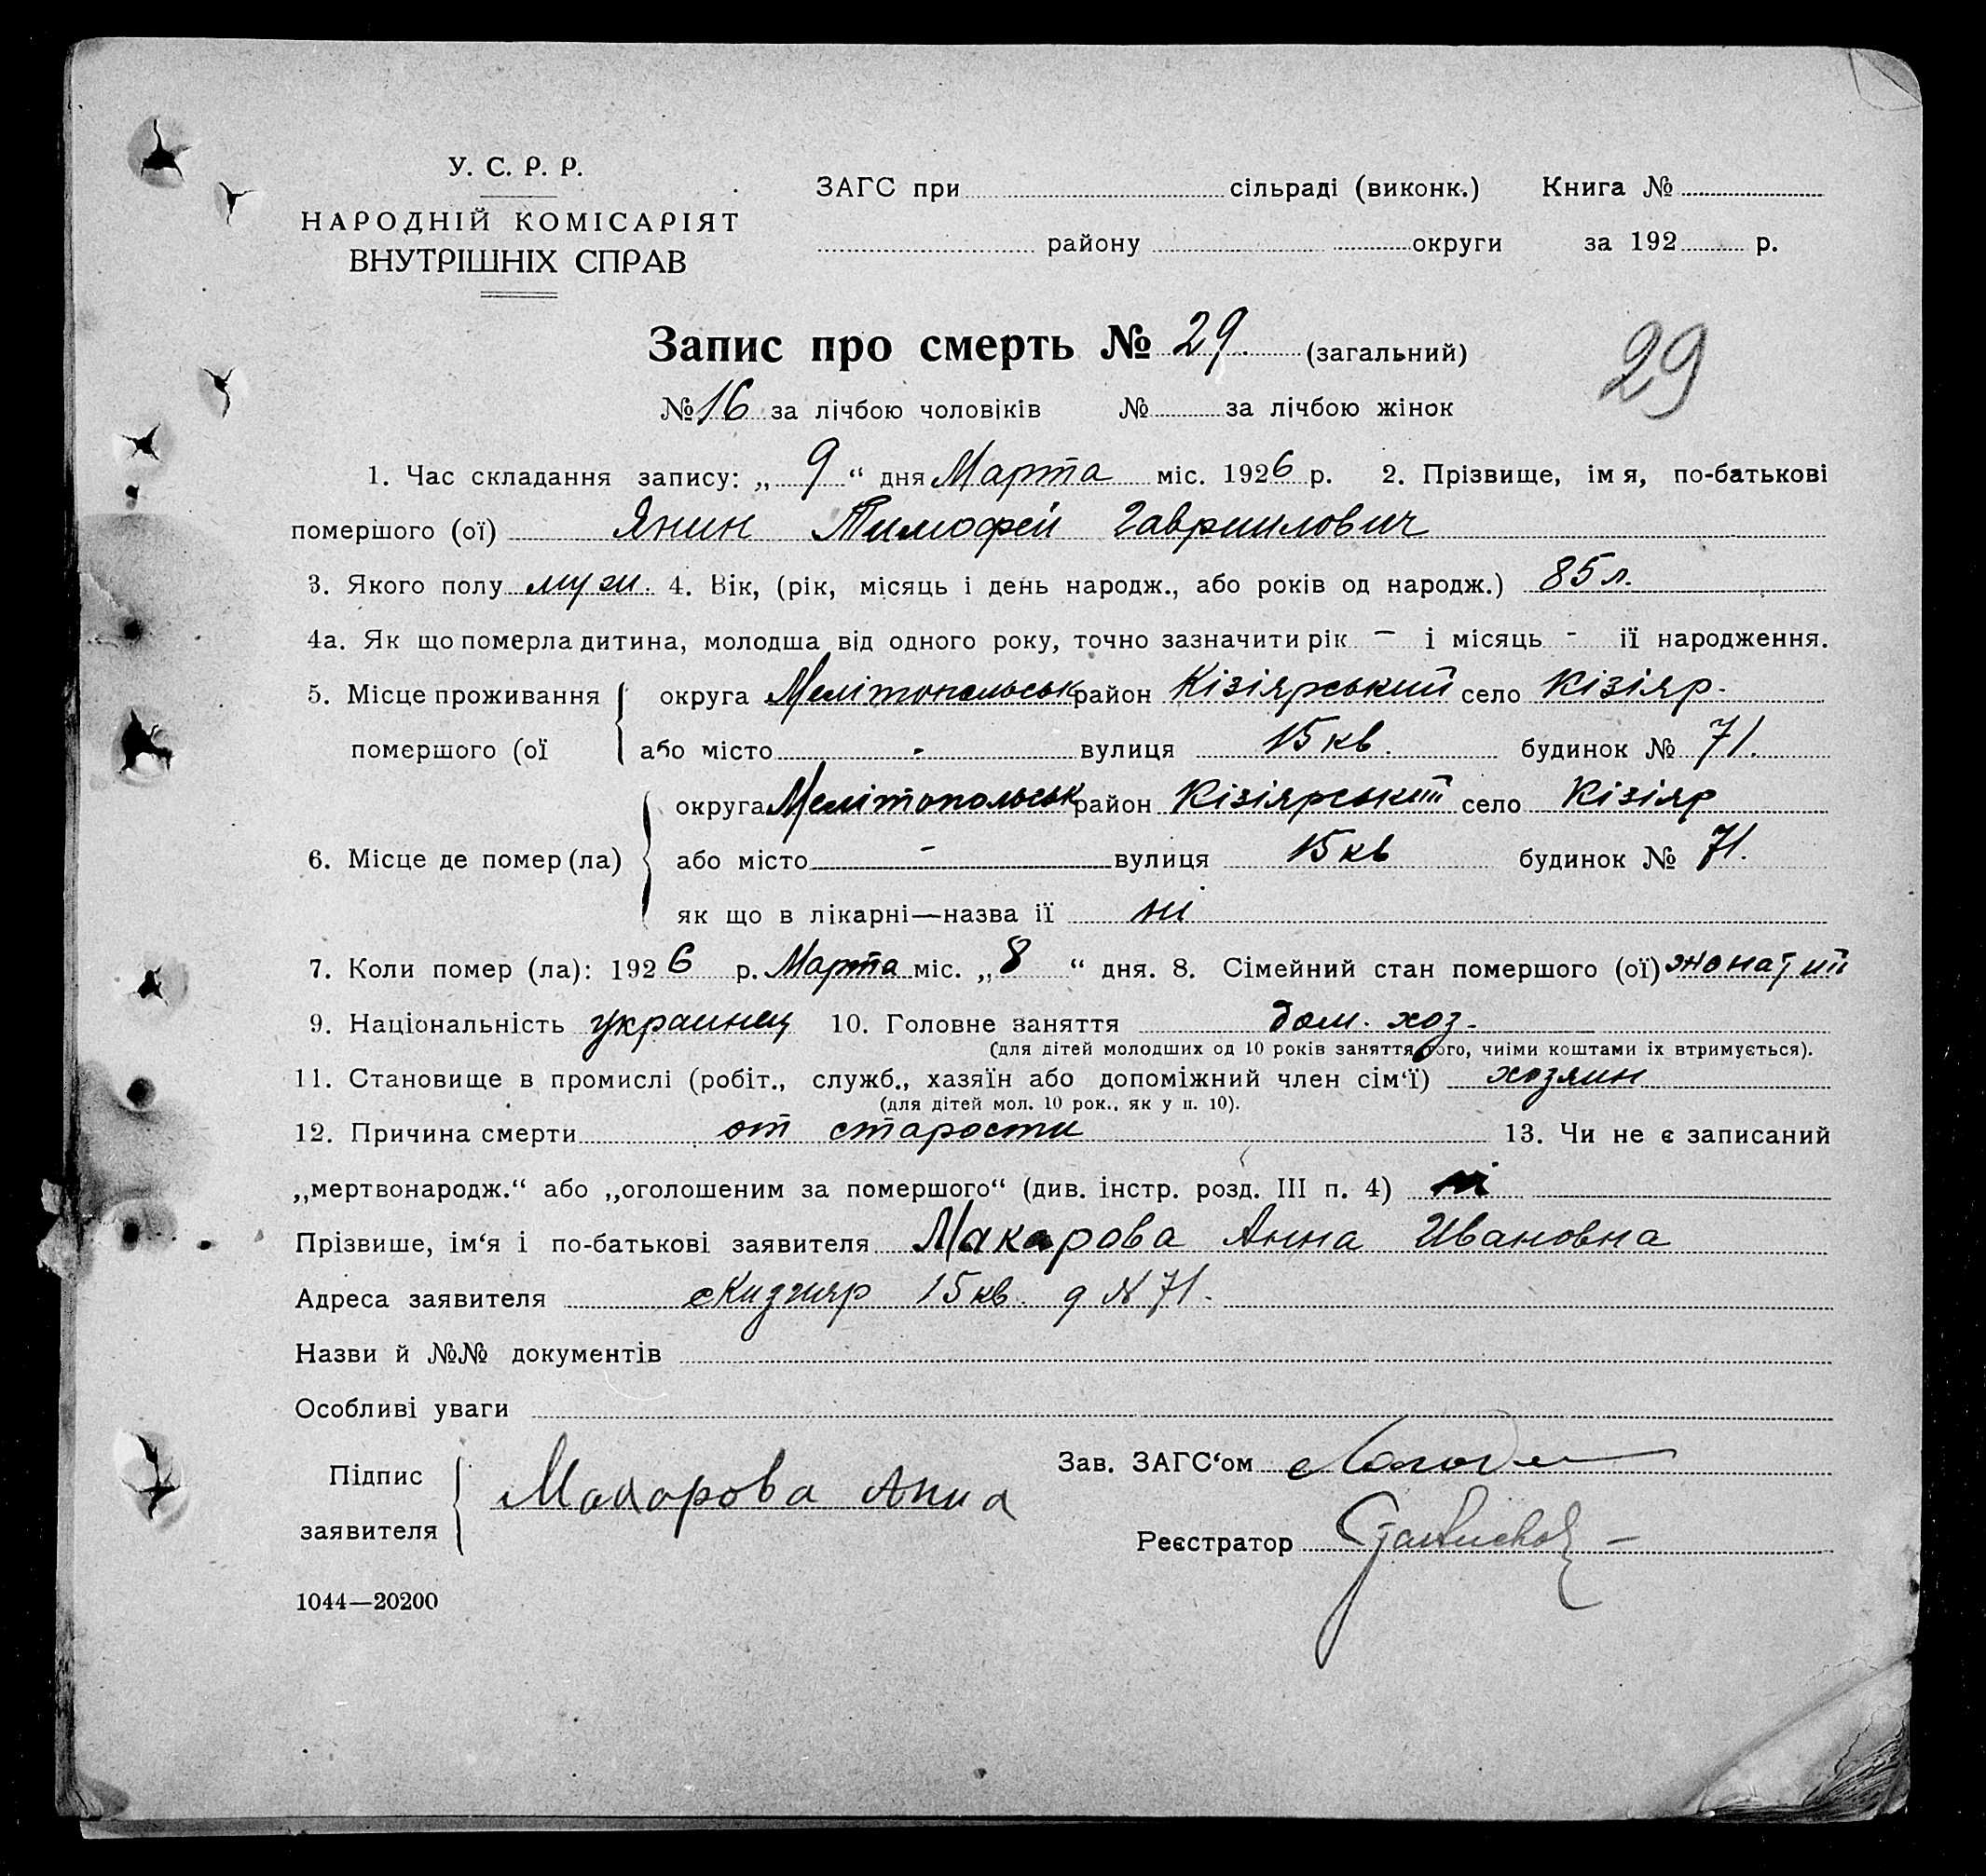 У. С. Р. Р.
НАРОДНІЙ КОМІСАРІЯТ
ВНУТРІШНІХ СПРАВ
ЗАГС при сільраді (виконк.) Книга №
району округи за 192 р.
Запис про смерть № 29. (загальний)
29
№ 16 за лічбою чоловіків № за лічбою жінок
1. Час складання запису: „ 9 “ дня Марта міс. 1926 р. 2. Прізвище, ім я, по-батькові
помершого (ої) Янин Тимофей Гавриилович
3. Якого полу муж. 4. Вік, (рік, місяць і день народж., або років од народж.) 85 л.
4а. Як що померла дитина, молодша від одного року, точно зазначити рік – і місяць - ії народження.
5. Місце проживання округа Мелітопольськ район Кізіярський село Кізіяр.
помершого (ої або місто - вулиця 15 кв. будинок № 71.
округа Мелітопольськ район Кізіярський село Кізіяр
6. Місце де помер (ла) або місто - вулиця 15 кв будинок № 71.
як що в лікарні—назва ії ні
7. Коли помер (ла): 1926 р. Марта міс. „ 8 “ дня. 8. Сімейний стан помершого (ої) жонатий
9. Національність украинец 10. Головне заняття дом. хоз.
(для дітей молодших од 10 років заняття того, чиїми коштами іх втримується).
11. Становище в промислі (робіт., служб., хазяїн або допоміжний член сім‘ї) хозяин
(для дітей мол. 10 рок., як у п. 10).
12. Причина смерти от старости 13. Чи не є записаний
„мертвонародж.“ або „оголошеним за помершого“ (див. інстр. розд. III п. 4) ні
Прізвише, ім‘я і по-батькові заявителя Макарова Анна Ивановна
Адреса заявителя Кизияр 15 кв. д № 71.
Назви й №№ документів
Особливі уваги
Підпис
заявителя Макарова Анна
Зав. ЗАГС‘ом
Реєстратор
1044—20200